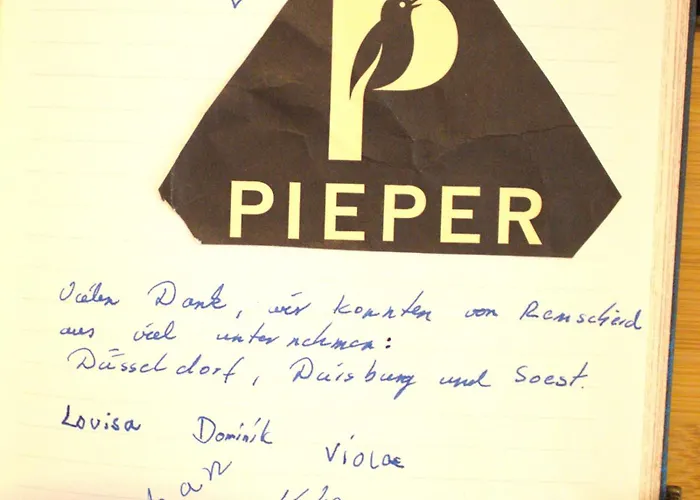 P
PIEPER
Vielen Dank, wir konnten von Remscheid
aus viel unternehmen:
Düsseldorf, Duisburg und Soest.
Louisa Dominik Viola